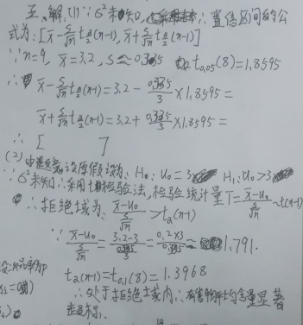 五、解:(1)∵σ²未知, ∴置信区间的公
式为:[x̄-S/√n t_{α/2}(n-1), x̄+S/√n t_{α/2}(n-1)]
∵n=9, x̄=3.2, S≈0.335 t₀.₀₅(8)=1.8595
∴ x̄-S/√n t_{α/2}(n-1)=3.2-0.335/3×1.8595=
x̄+S/√n t_{α/2}(n-1)=3.2+0.335/3×1.8595=
∴ [ ]
(2) 假设为: H₀: u₀=3 H₁: u₀>3
∵σ²未知∴采用t检验法,检验统计量T=(x̄-u₀)/(S/√n)~t(n-1)
∴拒绝域为: (x̄-u₀)/(S/√n)>t_α(n-1)
∵(x̄-u₀)/(S/√n)=(3.2-3)/(0.335/3)=(0.2×3)/0.335=1.791.
t_α(n-1)=t₀.₁(8)=1.3968
∴处于拒绝域内∴ 含量显著